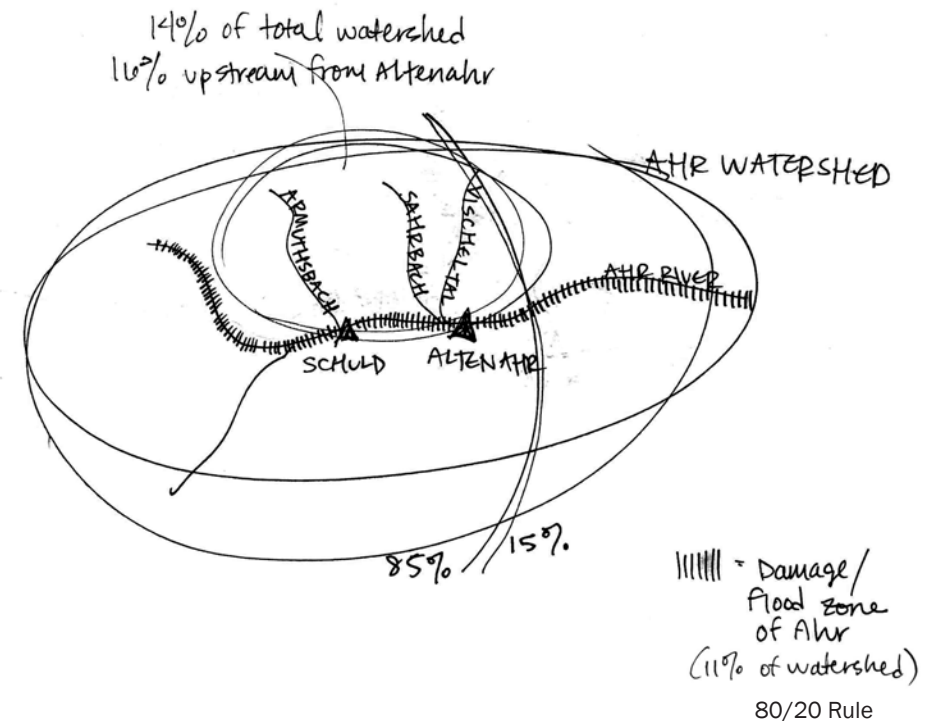 14% of total watershed
16% upstream from Altenahr
AHR WATERSHED
ARMUTHSBACH
SAHRBACH
VISCHELTAL
AHR RIVER
SCHULD
ALTENAHR
85%
15%
= Damage/
flood zone
of Ahr
(11% of watershed)
80/20 Rule